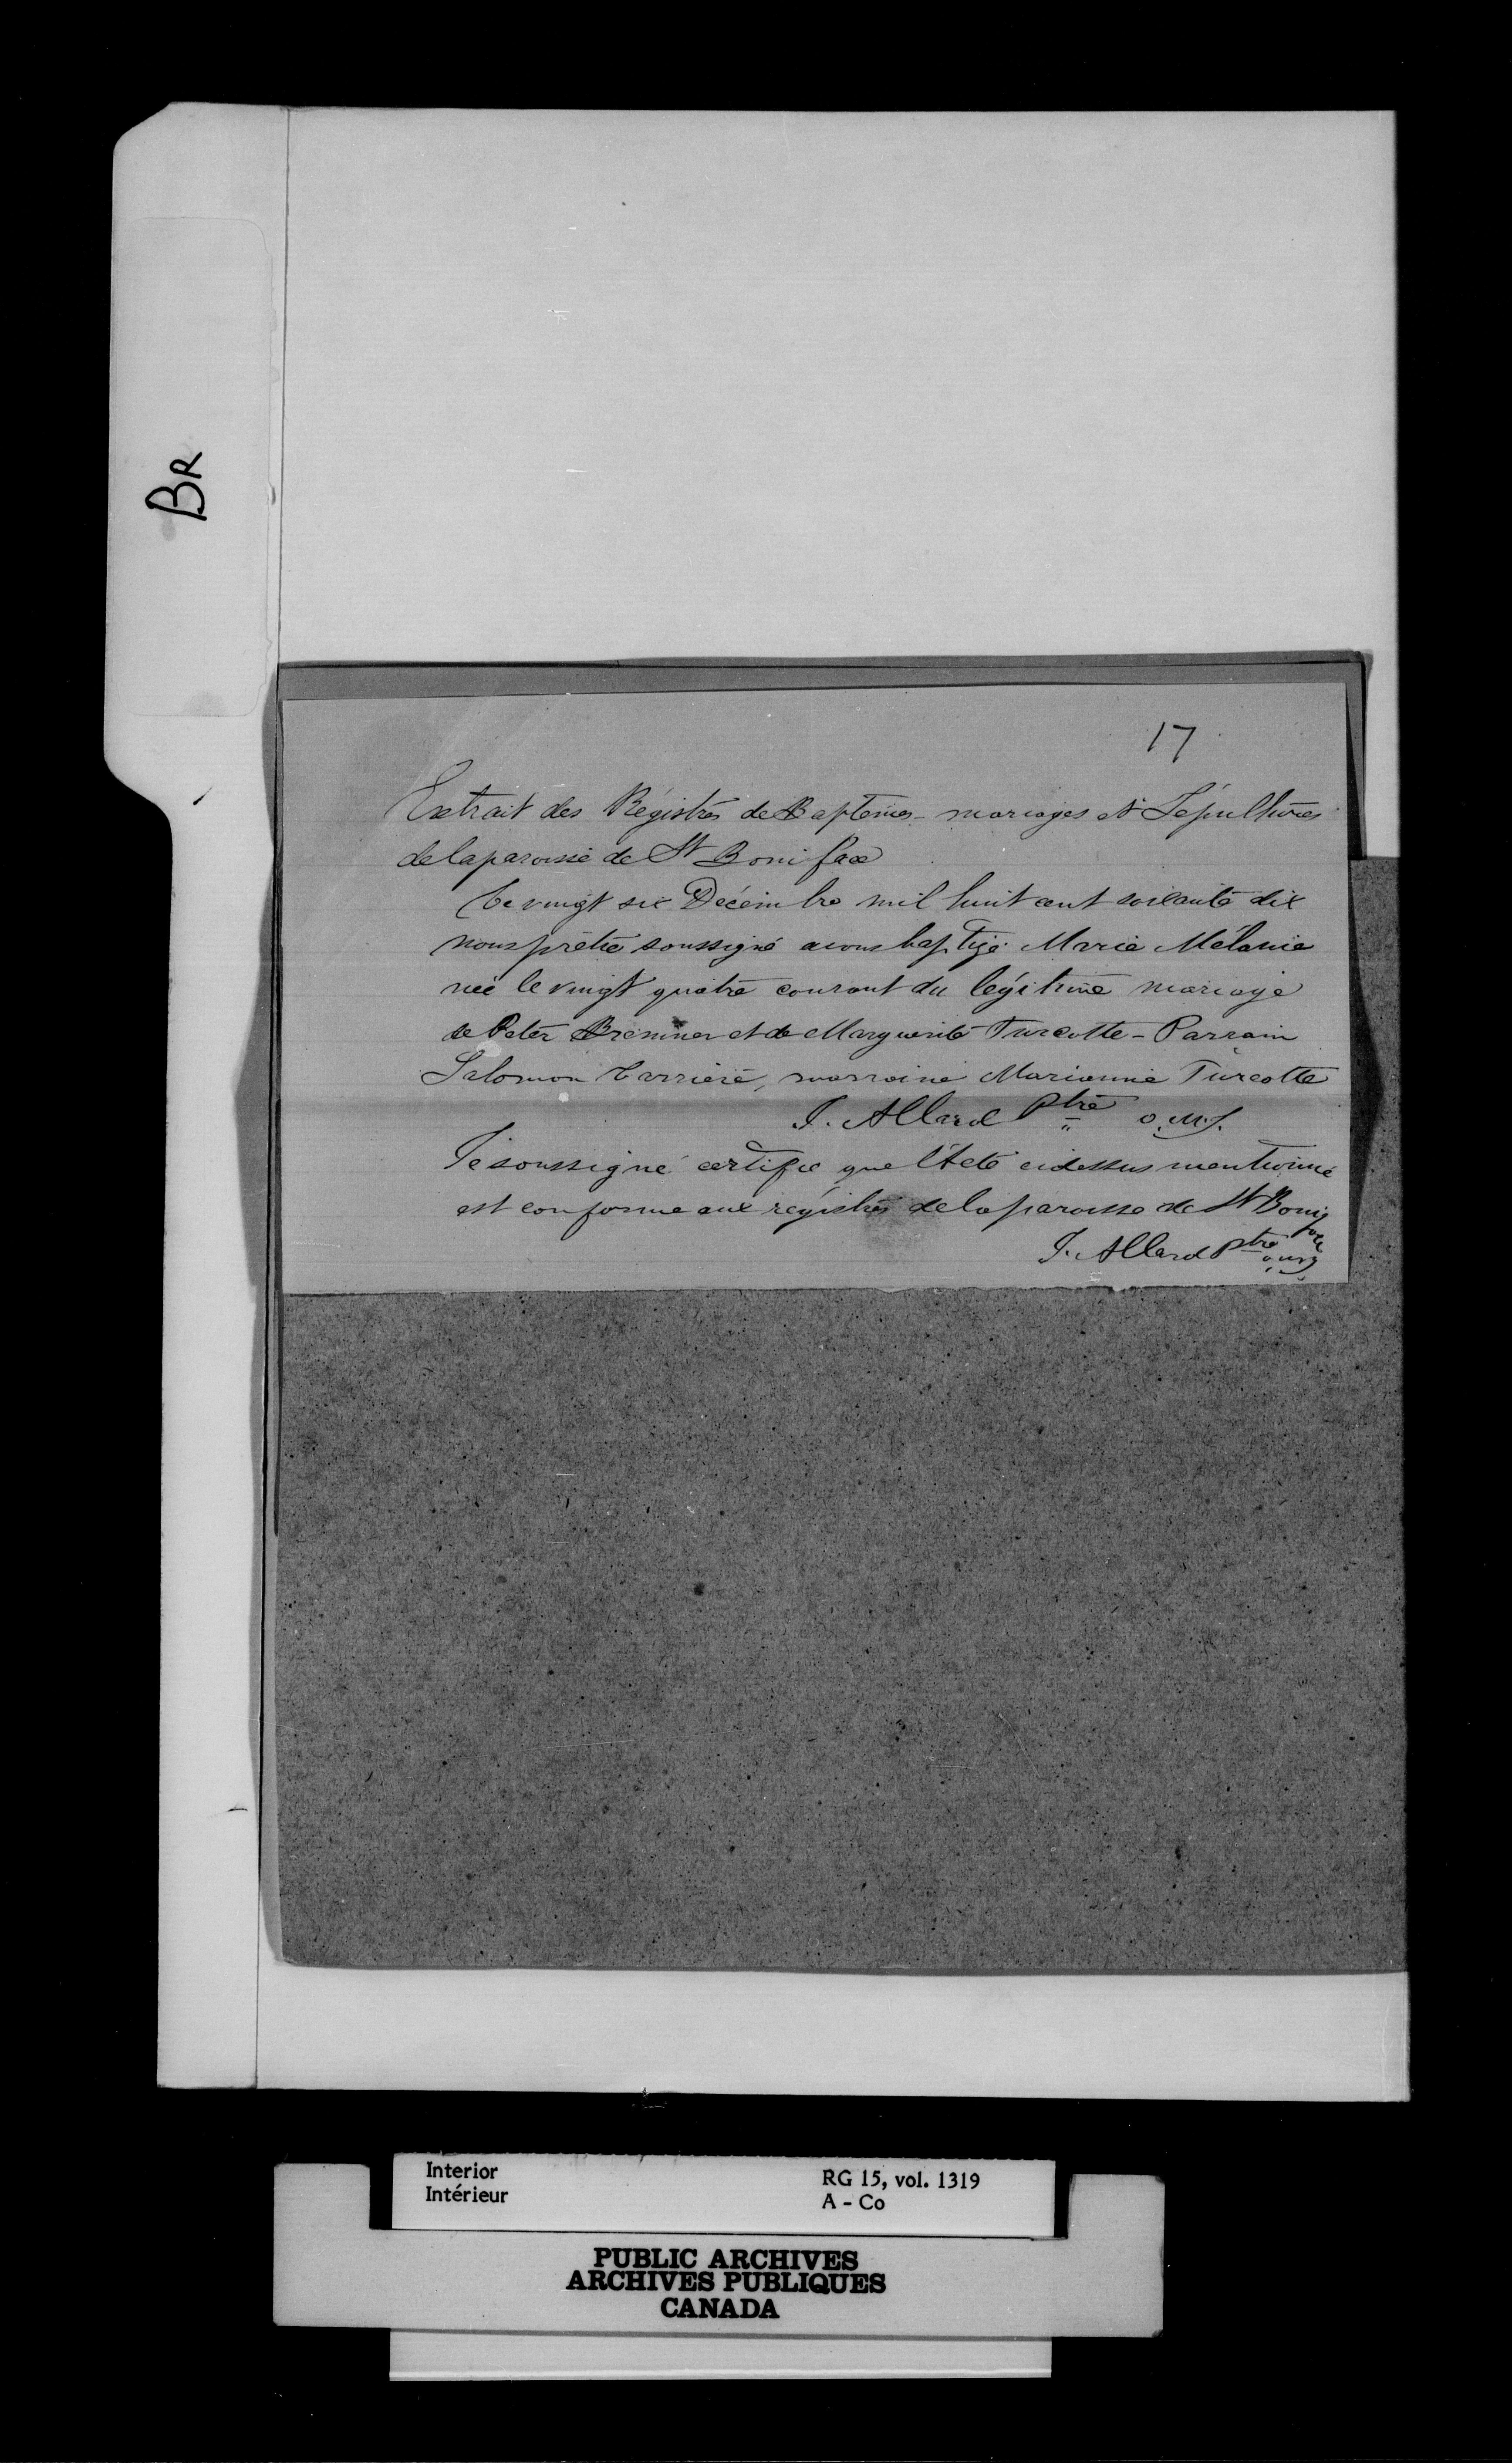 BR
17
Extrait des Régistres de Baptemes - mariages et Sépultures
de la paroisse de St Boniface
Le vingt six Décembre mil huit cent soixante dix
nous prêtre soussigné avons baptisé Marie Mélanie
née le vingt quatre courant du légitime mariage
de Peter Bremner et de Marguerite Turcotte - Parrain
Salomon Carrière, marraine Marianne Turcotte
J. Allard Ptre o.m.I.
Je soussigné certifie que l'Acte cidessus mentionné
est conforme aux régistres de la paroisse de St Boniface
J. Allard Ptre o.m.I.
Interior
Intérieur
RG 15, vol. 1319
A - Co
PUBLIC ARCHIVES
ARCHIVES PUBLIQUES
CANADA